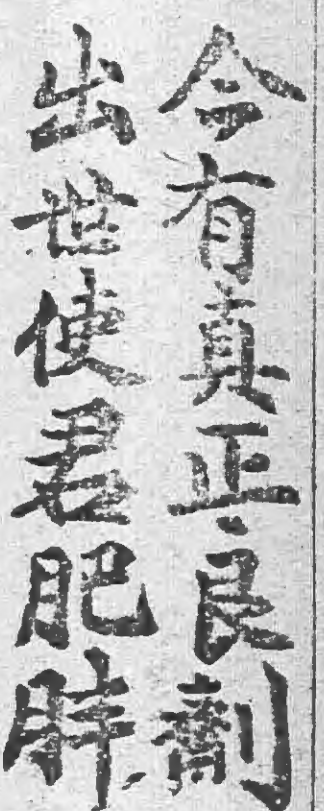 今有真正良劑
出世使君肥胖